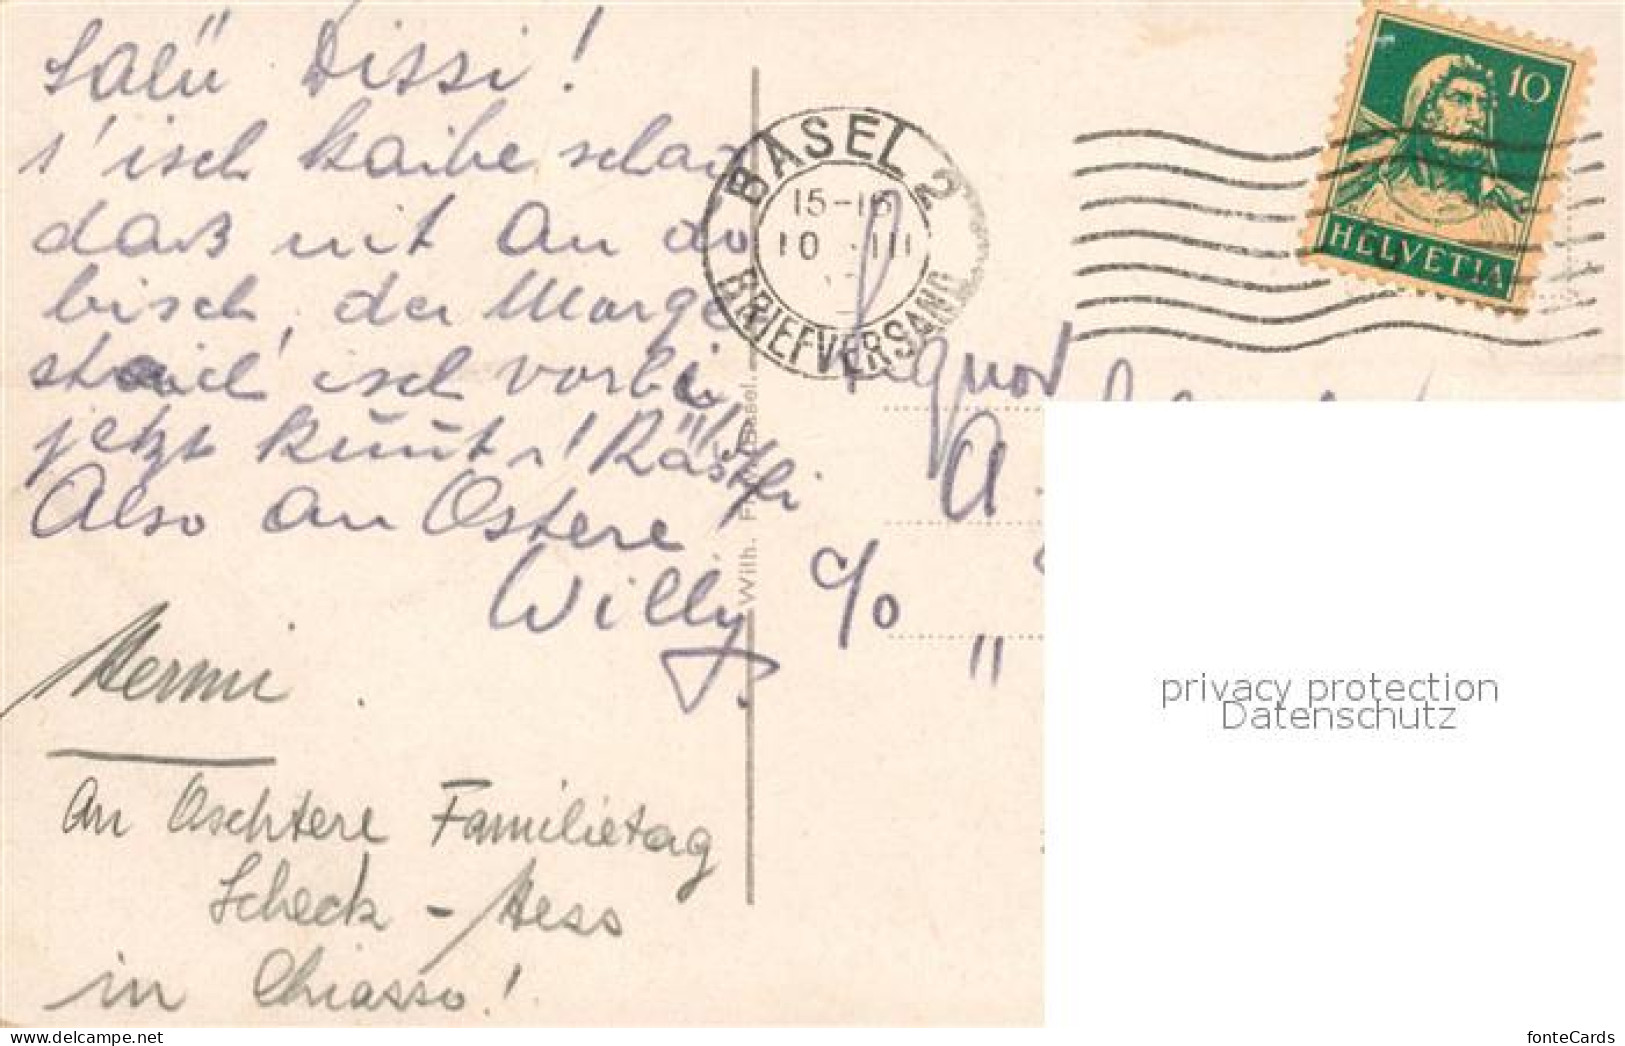 Salü Dissi!
s'isch kaibe schad
daß nit an do
bisch, der Morge
straich isch vorbi,
jetzt kunnt s' Räschtli
Also an Ostere
Willy.
Hermi.
An Oschtere Familietag
Scheck - Hess
in Chiasso!
BASEL 2
15-16
10 III
BRIEFVERSAND
10
HELVETIA
Wilh.
Basel.
Signor
A.
c/o
"
privacy protection
Datenschutz
fonteCards